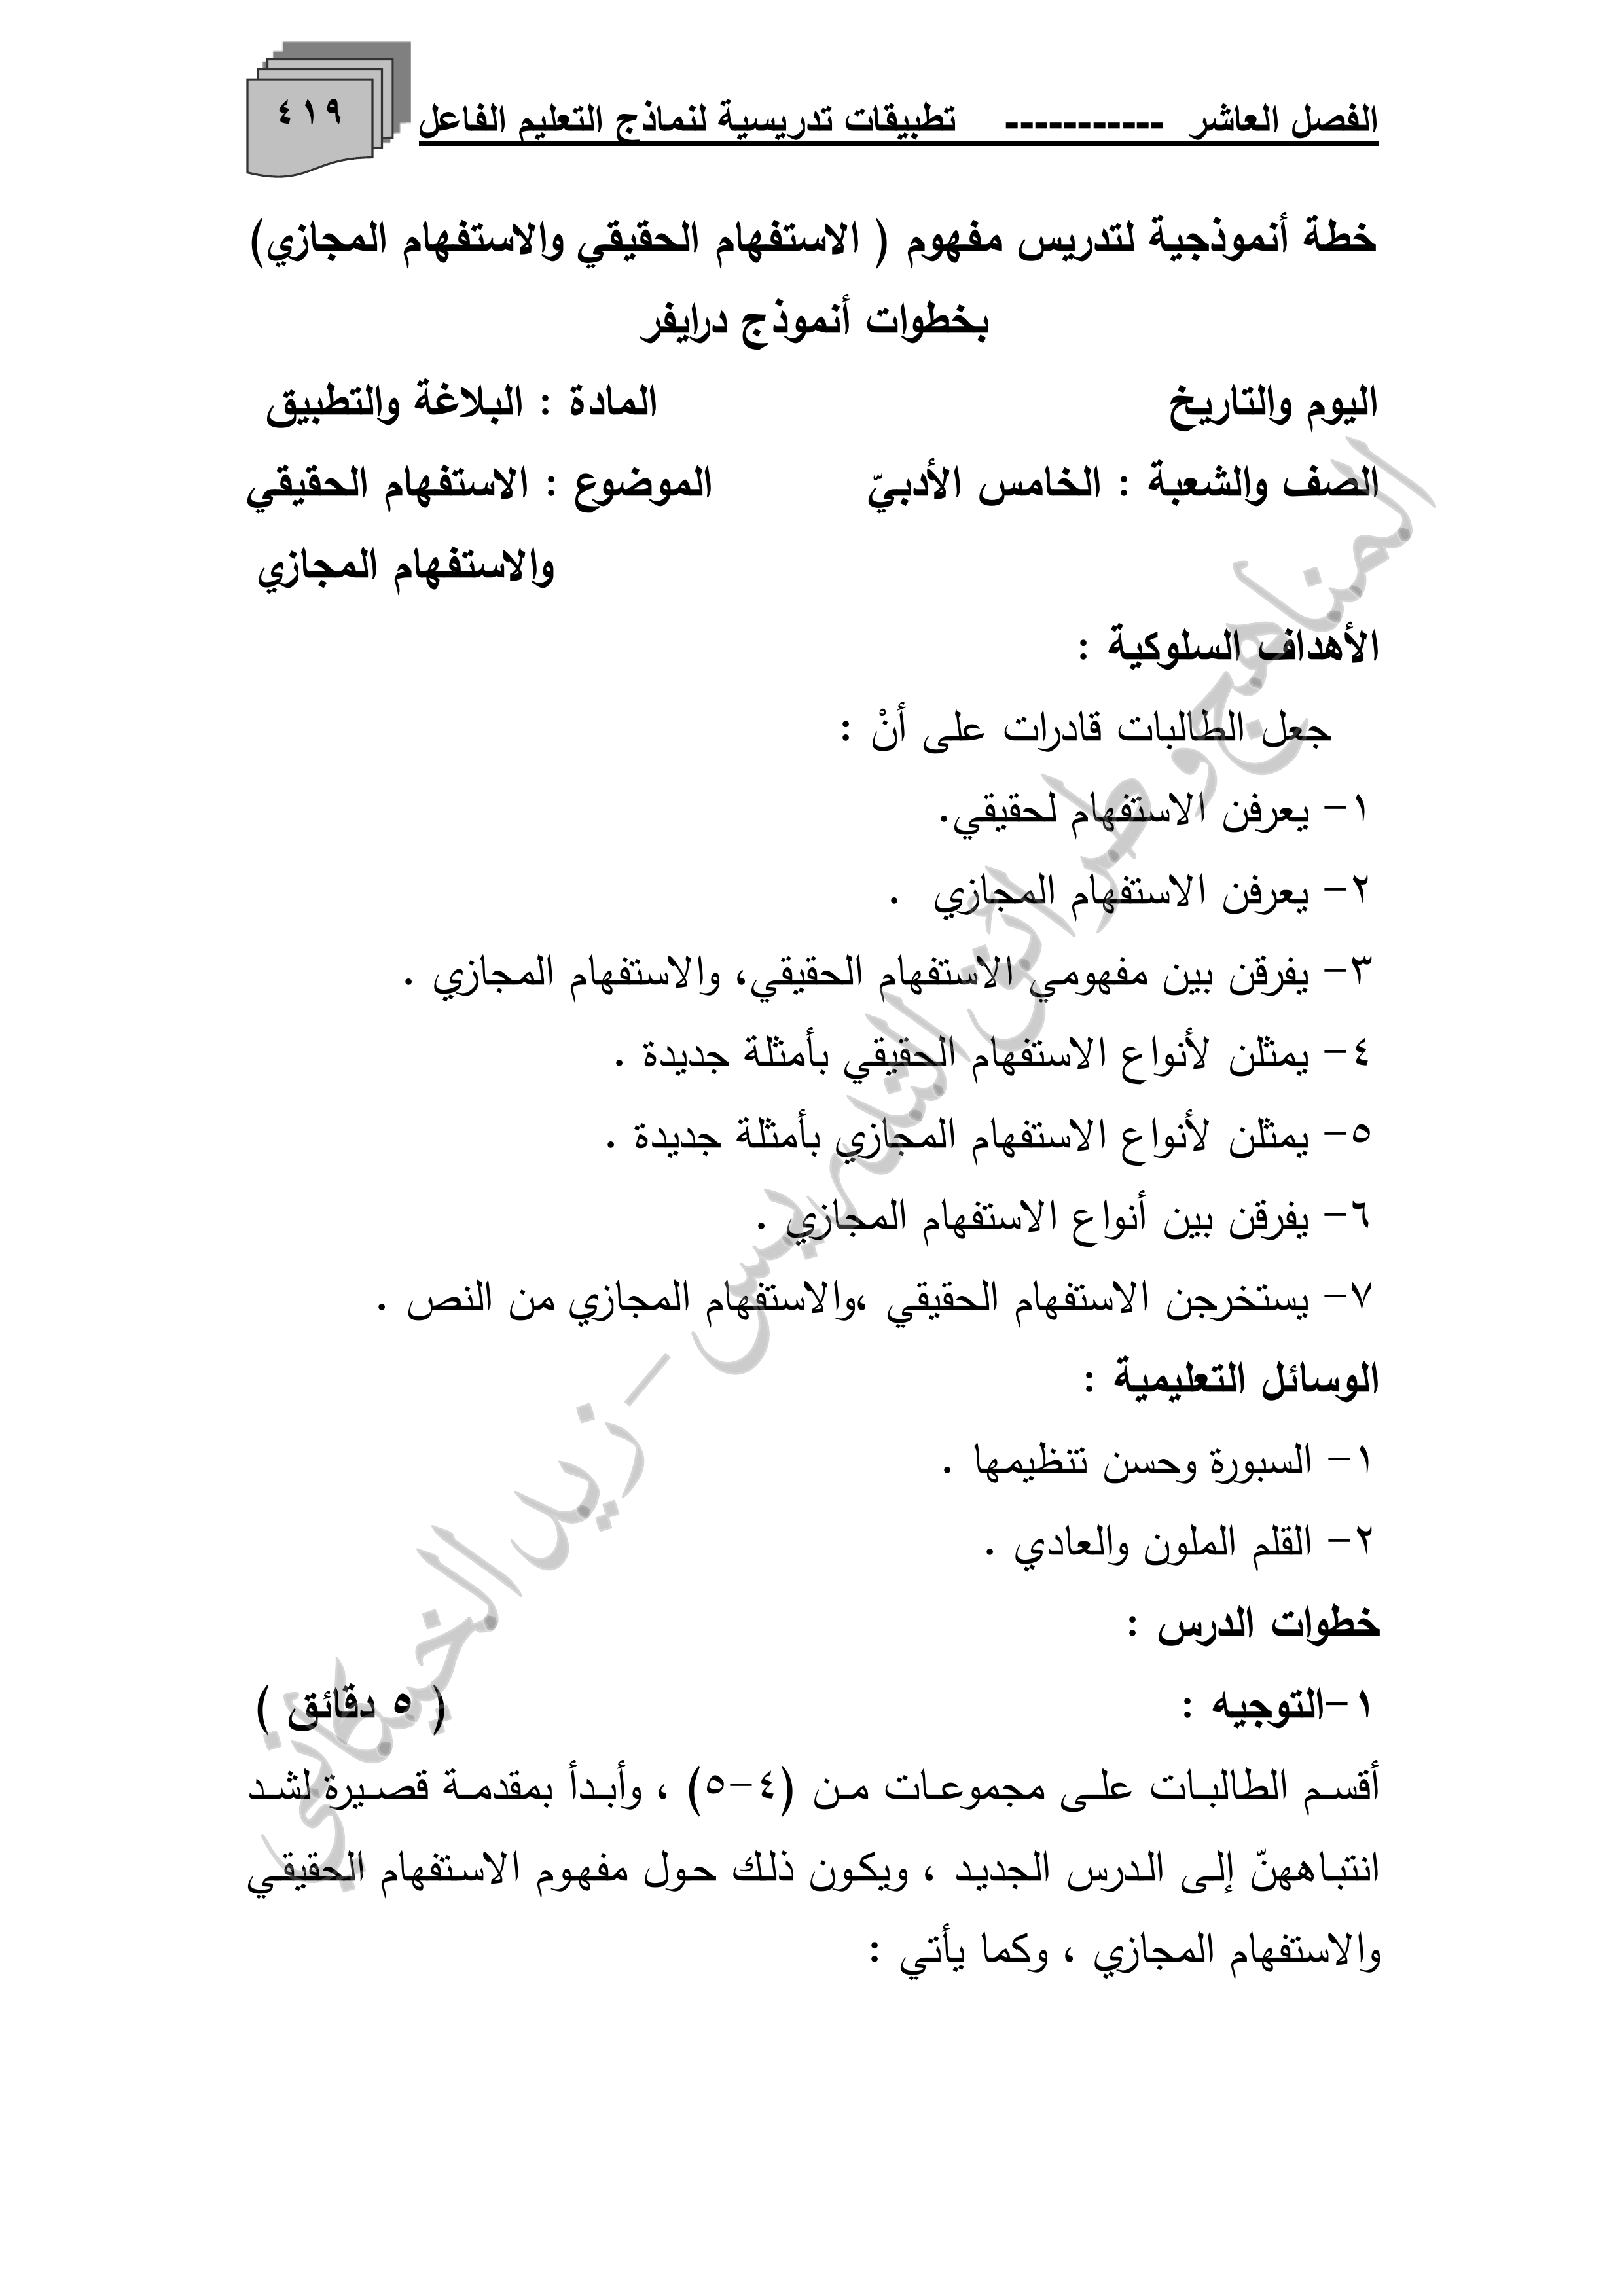 الفصل العاشر ----------- تطبيقات تدريسية لنماذج التعليم الفاعل
٤١٩
خطة أنموذجية لتدريس مفهوم ( الاستفهام الحقيقي والاستفهام المجازي)
بخطوات أنموذج درايفر
اليوم والتاريخ المادة : البلاغة والتطبيق
الصف والشعبة : الخامس الأدبيّ الموضوع : الاستفهام الحقيقي
والاستفهام المجازي
الأهداف السلوكية :
جعل الطالبات قادرات على أنْ :
١- يعرفن الاستفهام لحقيقي.
٢- يعرفن الاستفهام المجازي .
٣- يفرقن بين مفهومي الاستفهام الحقيقي، والاستفهام المجازي .
٤- يمثلن لأنواع الاستفهام الحقيقي بأمثلة جديدة .
٥- يمثلن لأنواع الاستفهام المجازي بأمثلة جديدة .
٦- يفرقن بين أنواع الاستفهام المجازي .
٧- يستخرجن الاستفهام الحقيقي ،والاستفهام المجازي من النص .
الوسائل التعليمية :
١- السبورة وحسن تنظيمها .
٢- القلم الملون والعادي .
خطوات الدرس :
١-التوجيه : ( ٥ دقائق )
أقسم الطالبات على مجموعات من (٤-٥) ، وأبدأ بمقدمة قصيرة لشد
انتباههنّ إلى الدرس الجديد ، ويكون ذلك حول مفهوم الاستفهام الحقيقي
والاستفهام المجازي ، وكما يأتي :
المناهج وطرائق التدريس - زيد الخيكاني